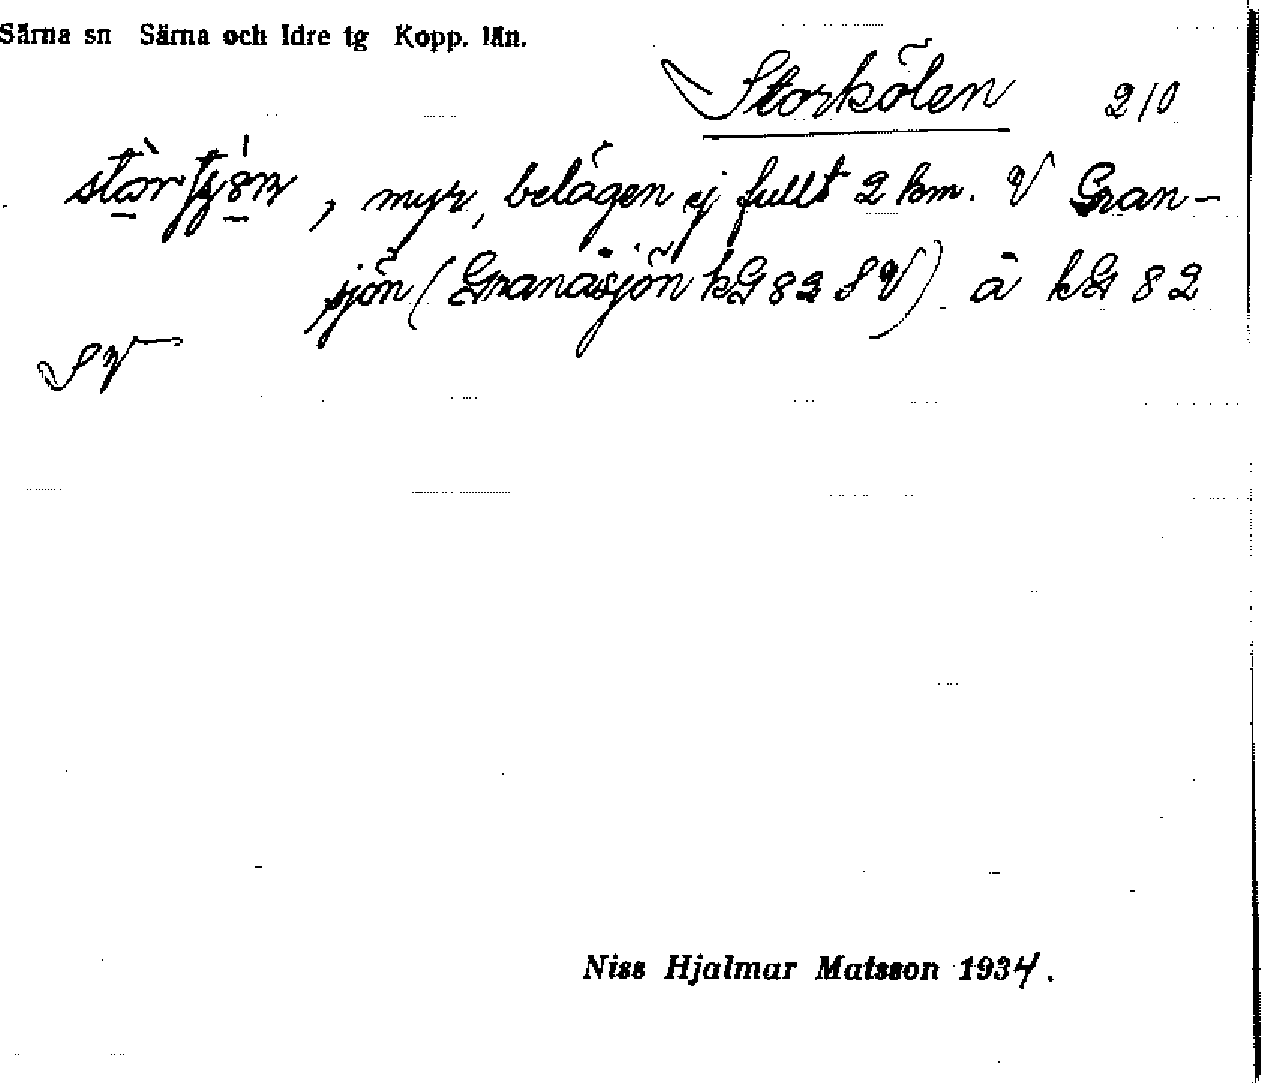 Särna sn Särna och Idre tg Kopp. län.
Storkölen 210
, myr, belägen ej fullt 2 km. V Gran-
sjön (Granåsjön kG 82 SV) å kG 82
SV
Niss Hjalmar Matsson 1934.